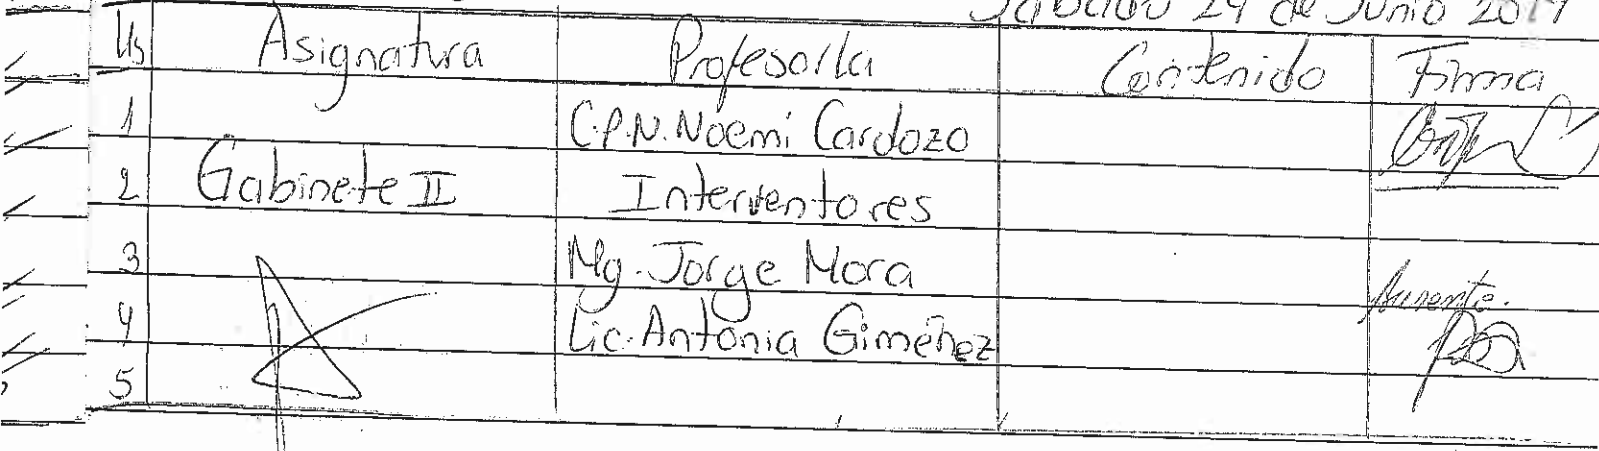 Sábado 29 de Junio 2019
Hs Asignatura Profesor/a Contenido Firma
1 C.P.N. Noemi Cardozo
2 Gabinete II Interventores
3 Mg. Jorge Mora Ausente.
4 Lic. Antonia Giménez
5